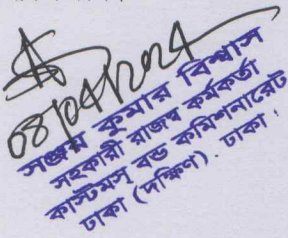 08/04/2024
সঞ্জয় কুমার বিশ্বাস
সহকারী রাজস্ব কর্মকর্তা
কাস্টমস্ বন্ড কমিশনারেট
ঢাকা (দক্ষিণ). ঢাকা।